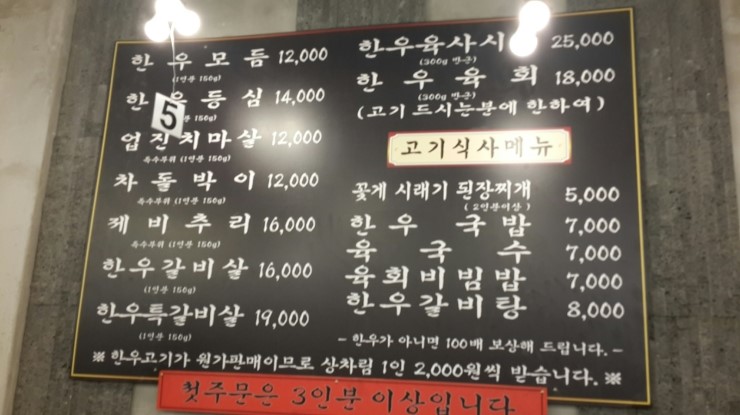 한우모듬 12,000
(1인분 150g)
한우등심 14,000
5
(1인분 150g)
업진치마살 12,000
특수부위 (1인분 150g)
차돌박이 12,000
특수부위 (1인분 150g)
제비추리 16,000
특수부위 (1인분 150g)
한우갈비살 16,000
(1인분 150g)
한우특갈비살 19,000
(1인분 150g)
한우육사시미 25,000
(300g 한근)
한우육회 18,000
(300g 한근)
(고기 드시는분에 한하여)
고기식사메뉴
꽃게 시래기 된장찌개 5,000
(2인분이상)
한우국밥 7,000
육국수 7,000
육회비빔밥 7,000
한우갈비탕 8,000
- 한우가 아니면 100배 보상해 드립니다. -
※ 한우고기가 원가판매이므로 상차림 1인 2,000원씩 받습니다. ※
첫주문은 3인분 이상입니다